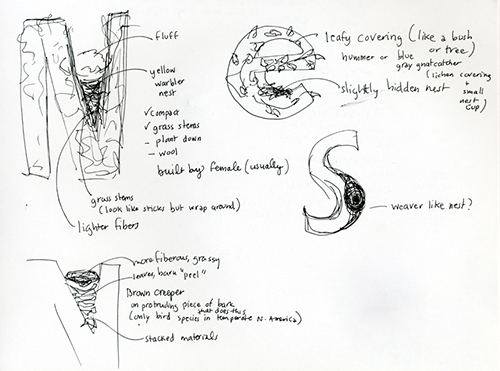 fluff
yellow
warbler
nest
✓ compact
✓ grass stems
- plant down
- wool
built by female (usually)
grass stems
(look like sticks but wrap around)
lighter fibers
e
leafy covering (like a bush
or tree)
hummer or blue
gray gnatcatcher
(lichen covering
+ small
nest
cup)
slightly hidden nest
S
weaver like nest?
more fiberous, grassy
leaves, bark "peel"
Brown Creeper
on protruding piece of bark
(only bird species that does this in temperate N. America)
stacked materials